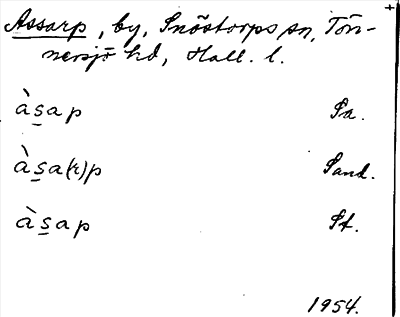 Assarp, by, Snöstorps sn, Tön-
nersjö hd, Hall. l.
às̲ap Sa.
às̲a(r)p Sand.
às̲ap St.
1954.